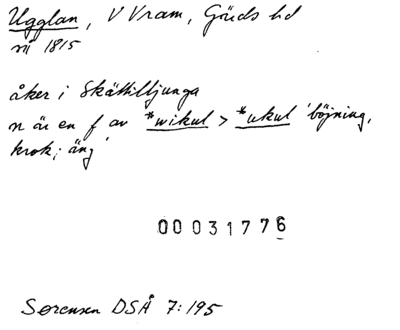 Ugglan, V Vram, Gärds hd
rå 1815
åker i Skättilljunga
n är en f av *wikul > *ukul 'böjning,
krok; äng'
00031776
Sørensen DSÅ 7:195